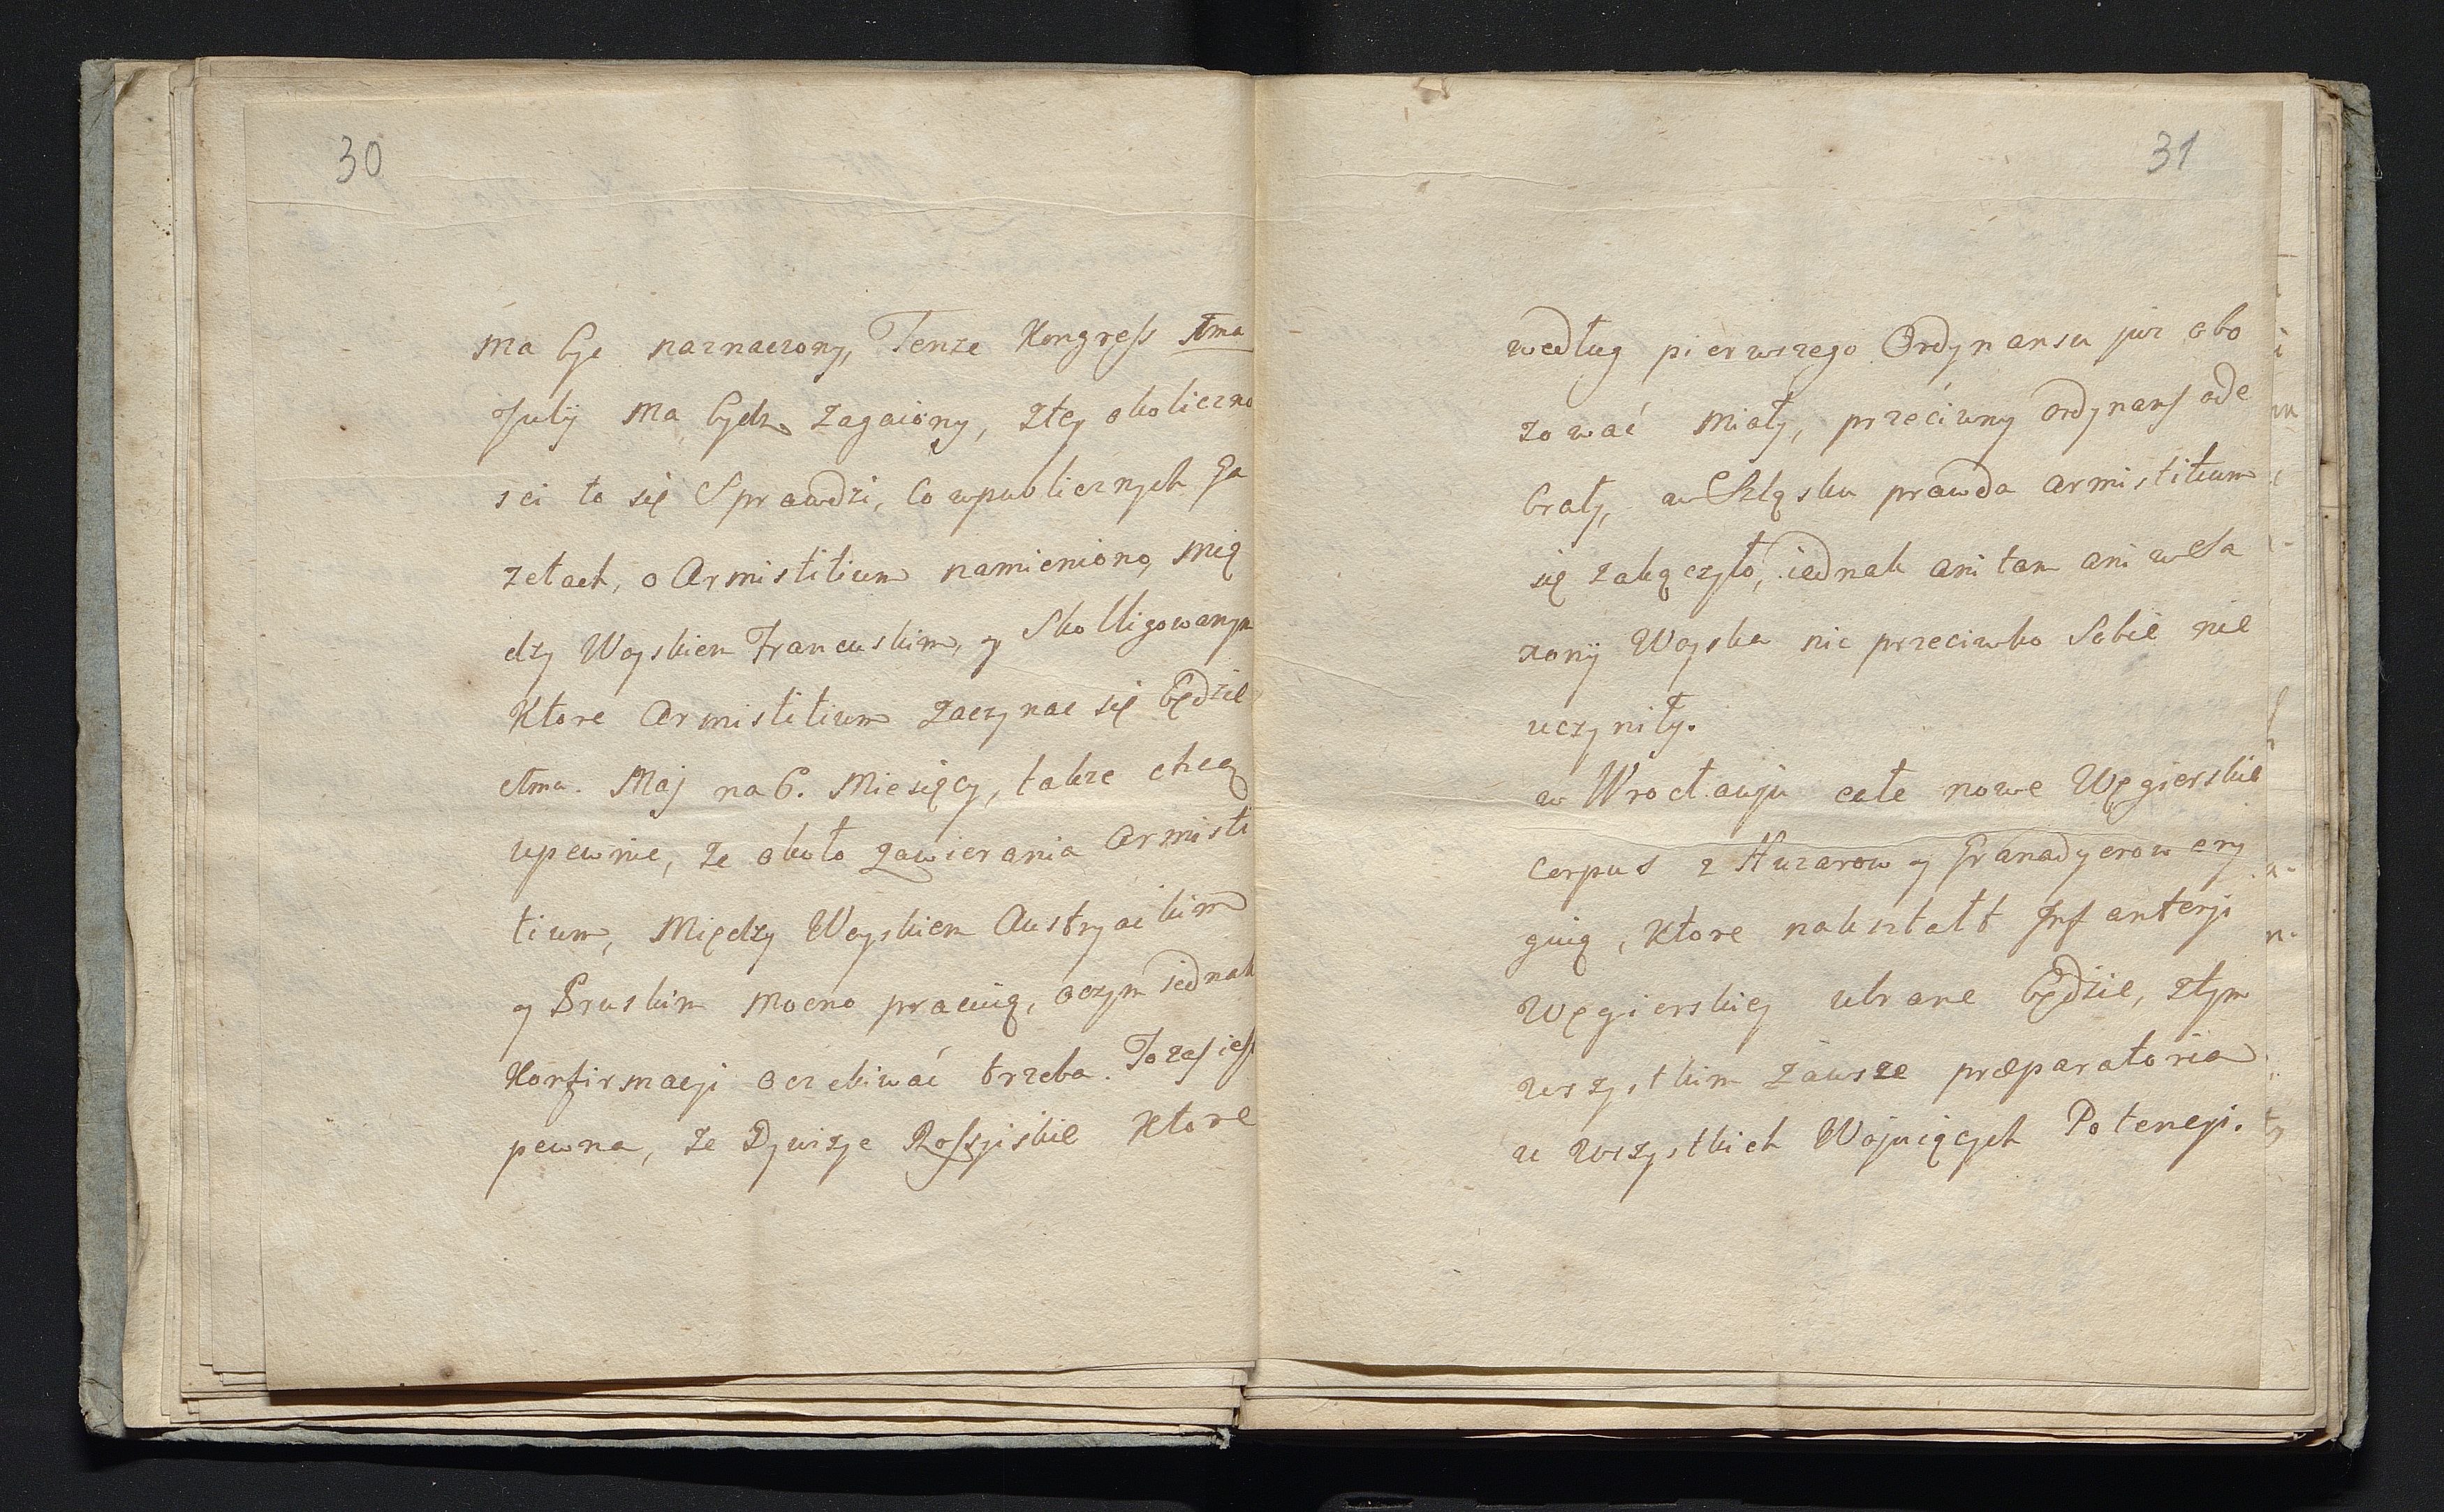 30
ma byc naznaczony, Tenze Kongress 1ma
Julij ma bydz zagaiony, ztey okoliczno
sci to się Sprawdzi, co wpublicznych Ga
zetach, o Armistitium namieniono, mię
dzy Woyskiem Francuskim, y Skolligowanym
Ktore Armistitium zaczynac się będzie
1ma. Maj na 6. Miesięcy, takze chcą
upewnic, ze około zawierania Armisti
tium, Między Woyskiem Austryackim
y Pruskim mocno pracuią, oczym iednak
Konfirmacji oczekiwać trzeba. To zas iest
pewna, ze Dywizye Rossyiskie Ktore
31
według pierwszego Ordynansu juz obo
zować miały, przeciwny ordynans ode
brały, w Szląsku prawda armistitium
się zakączyło, iednak ani tam ani w Sa
xonij Woyska nic przeciwko Sobie nie
uczyniły.
w Wrocławju całe nowe Węgierskie
Corpus z Huzarow y Granadyerow ery
guią, Ktore nakształt Infanterji
Węgierskiey ubrane będzie, ztym
wszystkim zawsze præparatoria
u wszystkich Wojuiących Potencji.